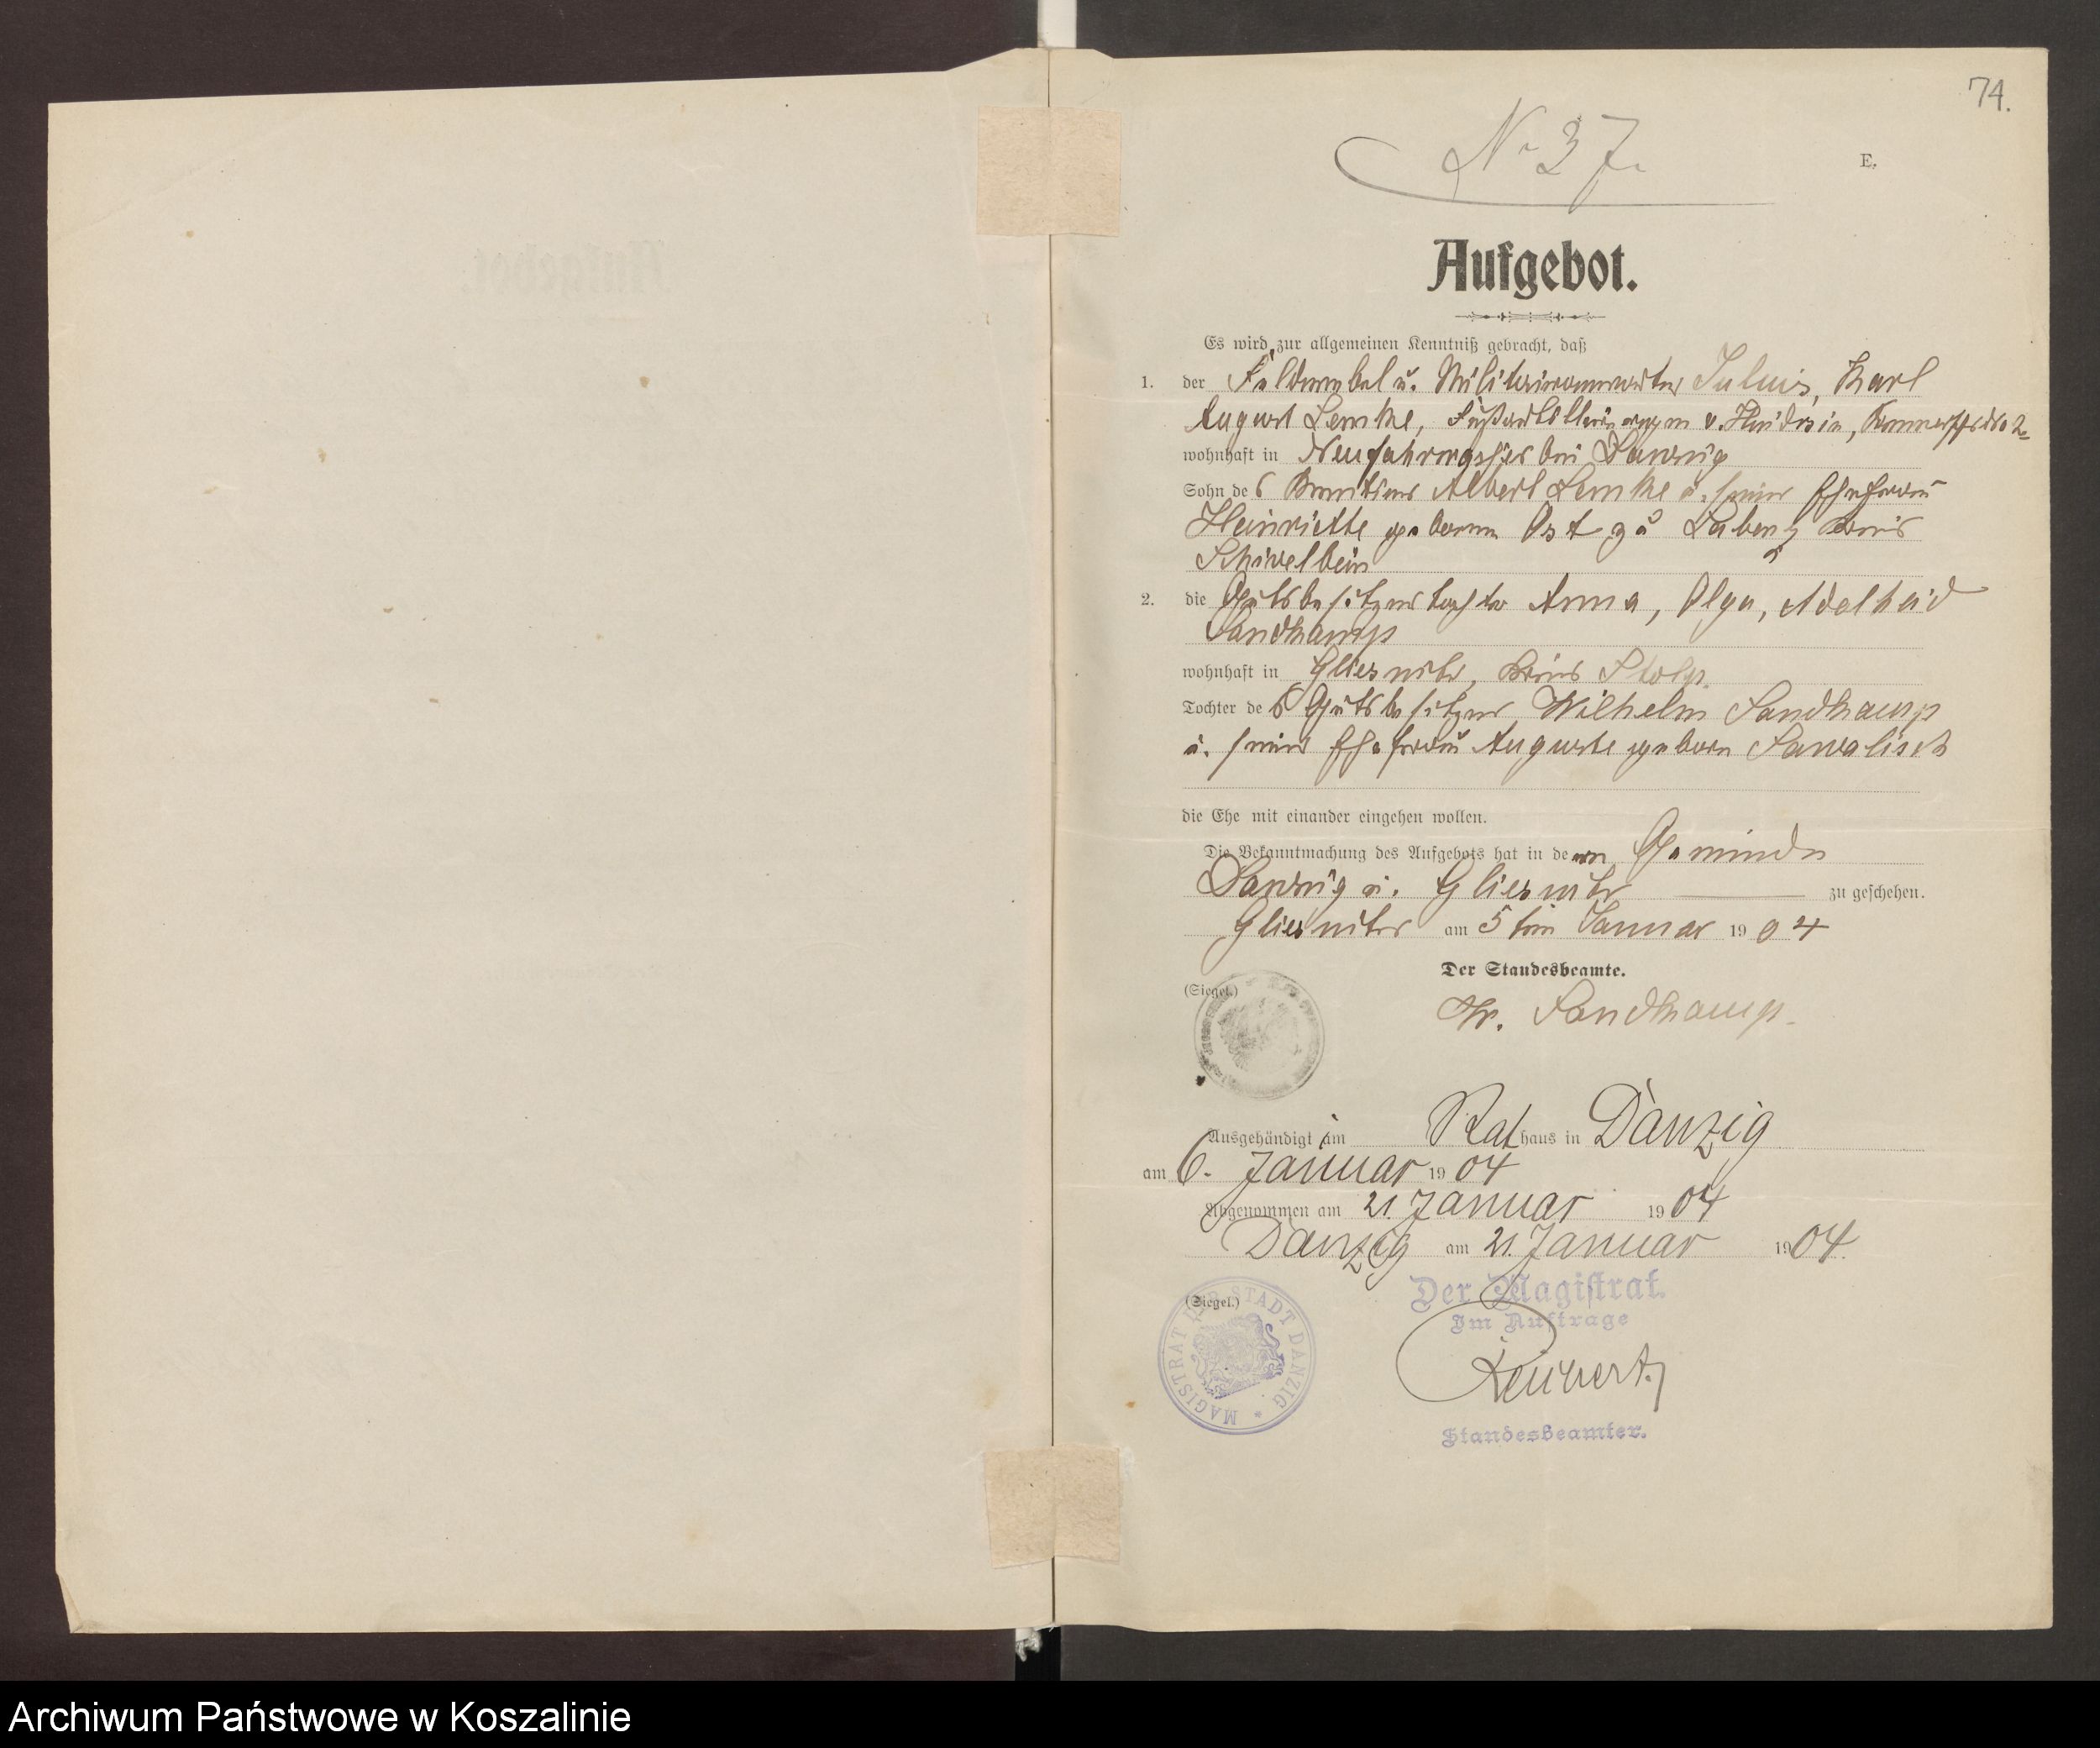 74.
No 37.
E.
Aufgebot.
Es wird zur allgemeinen Kenntniß gebracht, daß
1. der Feldwebel u. Militairanwärter Julius, Karl
August Lemke, v. Hindersin,
wohnhaft in Neufahrwasser bei Danzig
Sohn des Rentiers Albert Lemke u. seiner Ehefrau
Henriette geborene Ost zu Labenz Kreis
Schivelbein
2. die Gutsbesitzerstochter Anna, Olga, Adelheid
Sandkamp
wohnhaft in Gliesnitz, Kreis Stolp.
Tochter des Gutsbesitzers Wilhelm Sandkamp
u. seiner Ehefrau Auguste geborn
die Ehe mit einander eingehen wollen.
Die Bekanntmachung des Aufgebots hat in den Gemeinden
Danzig u. Gliesnitz zu geschehen.
Gliesnitz am 5ten Januar 1904
Der Standesbeamte.
(Siegel.)
Sandkamp.
Ausgehändigt im Rathaus in Danzig
am 6. Januar 1904
Abgenommen am 21. Januar 1904
Danzig am 21. Januar 1904.
(Siegel.)
MAGISTRAT DER STADT DANZIG *
Der Magistrat.
Im Auftrage
Standesbeamter.
Archiwum Państwowe w Koszalinie